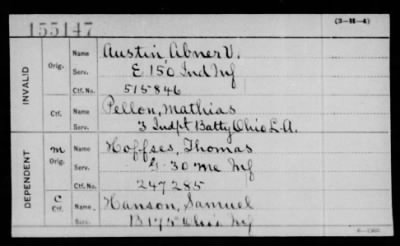 155147
(3-H-4)
INVALID
Orig.
Name Austin, Abner V.
Serv. E 150 Ind Inf
Ctf. No. 515846
Ctf.
Name Pellon, Mathias
Serv. 3 Indpt Batty Ohio L.A.
DEPENDENT
M
Orig.
Name Hoffses, Thomas
Serv. G. 30 Me Inf
Ctf. No. 247285
C
Ctf.
Name Hanson, Samuel
Serv. B 175 Ohio Inf